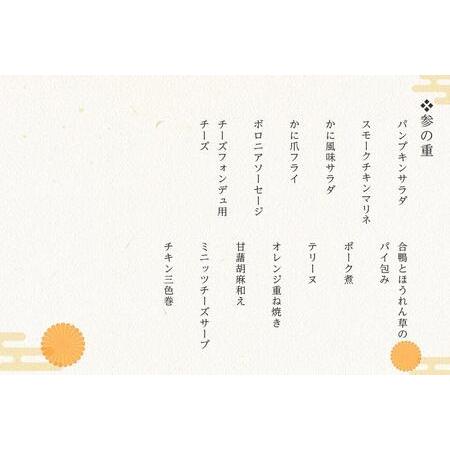 ❖参の重
パンプキンサラダ
スモークチキンマリネ
かに風味サラダ
かに爪フライ
ボロニアソーセージ
チーズフォンデュ用
チーズ
合鴨とほうれん草の
パイ包み
ポーク煮
テリーヌ
オレンジ重ね焼き
甘藷胡麻和え
ミニッツチーズサーブ
チキン三色巻